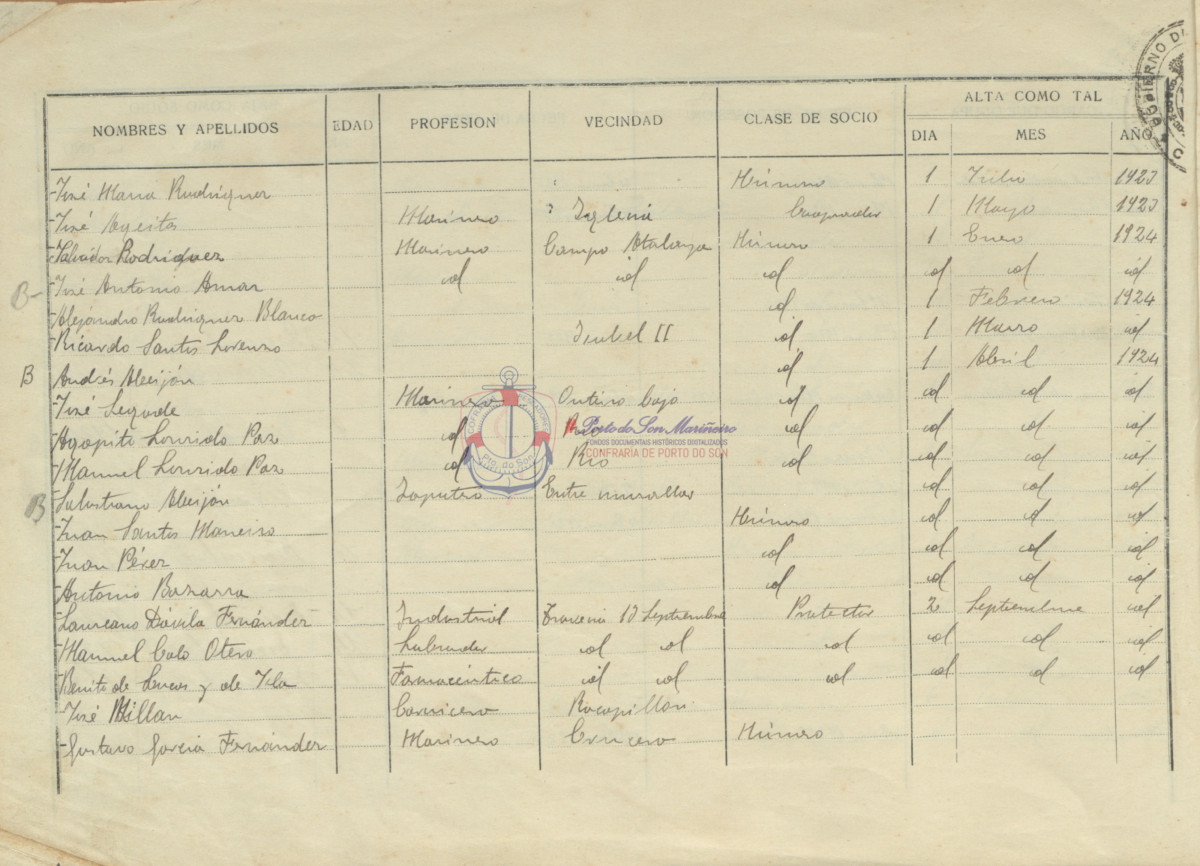 ALTA COMO TAL
NOMBRES Y APELLIDOS EDAD PROFESION VECINDAD CLASE DE SOCIO DIA MES AÑO
José Maria Rodríguez Húmero 1 Julio 1923
José Ageitos Marinero Iglesia 1 Mayo 1923
Salvador Rodríguez Marinero Campo Atalaya Húmero 1 Enero 1924
B- José Antonio id id id id id id
Alejandro Rodríguez Blanco id 1 Febrero 1924
Ricardo Santos Lorenzo Isabel II id 1 Marzo id
B Andrés Aleijón id 1 Abril 1924
José Segade Marinero Outeiro bajo id id id id
Agapito Lourido Paz id id id id id
Manuel Lourido Paz id Rio id id id id
B Aleijón Zapatero Entre murallas id id id
Juan Santos Maneiro Húmero id id id
Juan Pérez id id id id
Antonio Bazarra id id id id
Laureano Dávila Fernández Industrial Travesia 13 Septiembre Protector 2 Septiembre id
Manuel Calo Otero Labrador id id id id id id
Benito de Lucas y de Isla Farmacéutico id id id id id id
José Millan Carnicero
Gustavo García Fernández Marinero Crucero Húmero
Porto do Son Mariñeiro
FONDOS DOCUMENTAIS HISTÓRICOS DIXITALIZADOS
CONFRARÍA DE PORTO DO SON
Pto. do Son